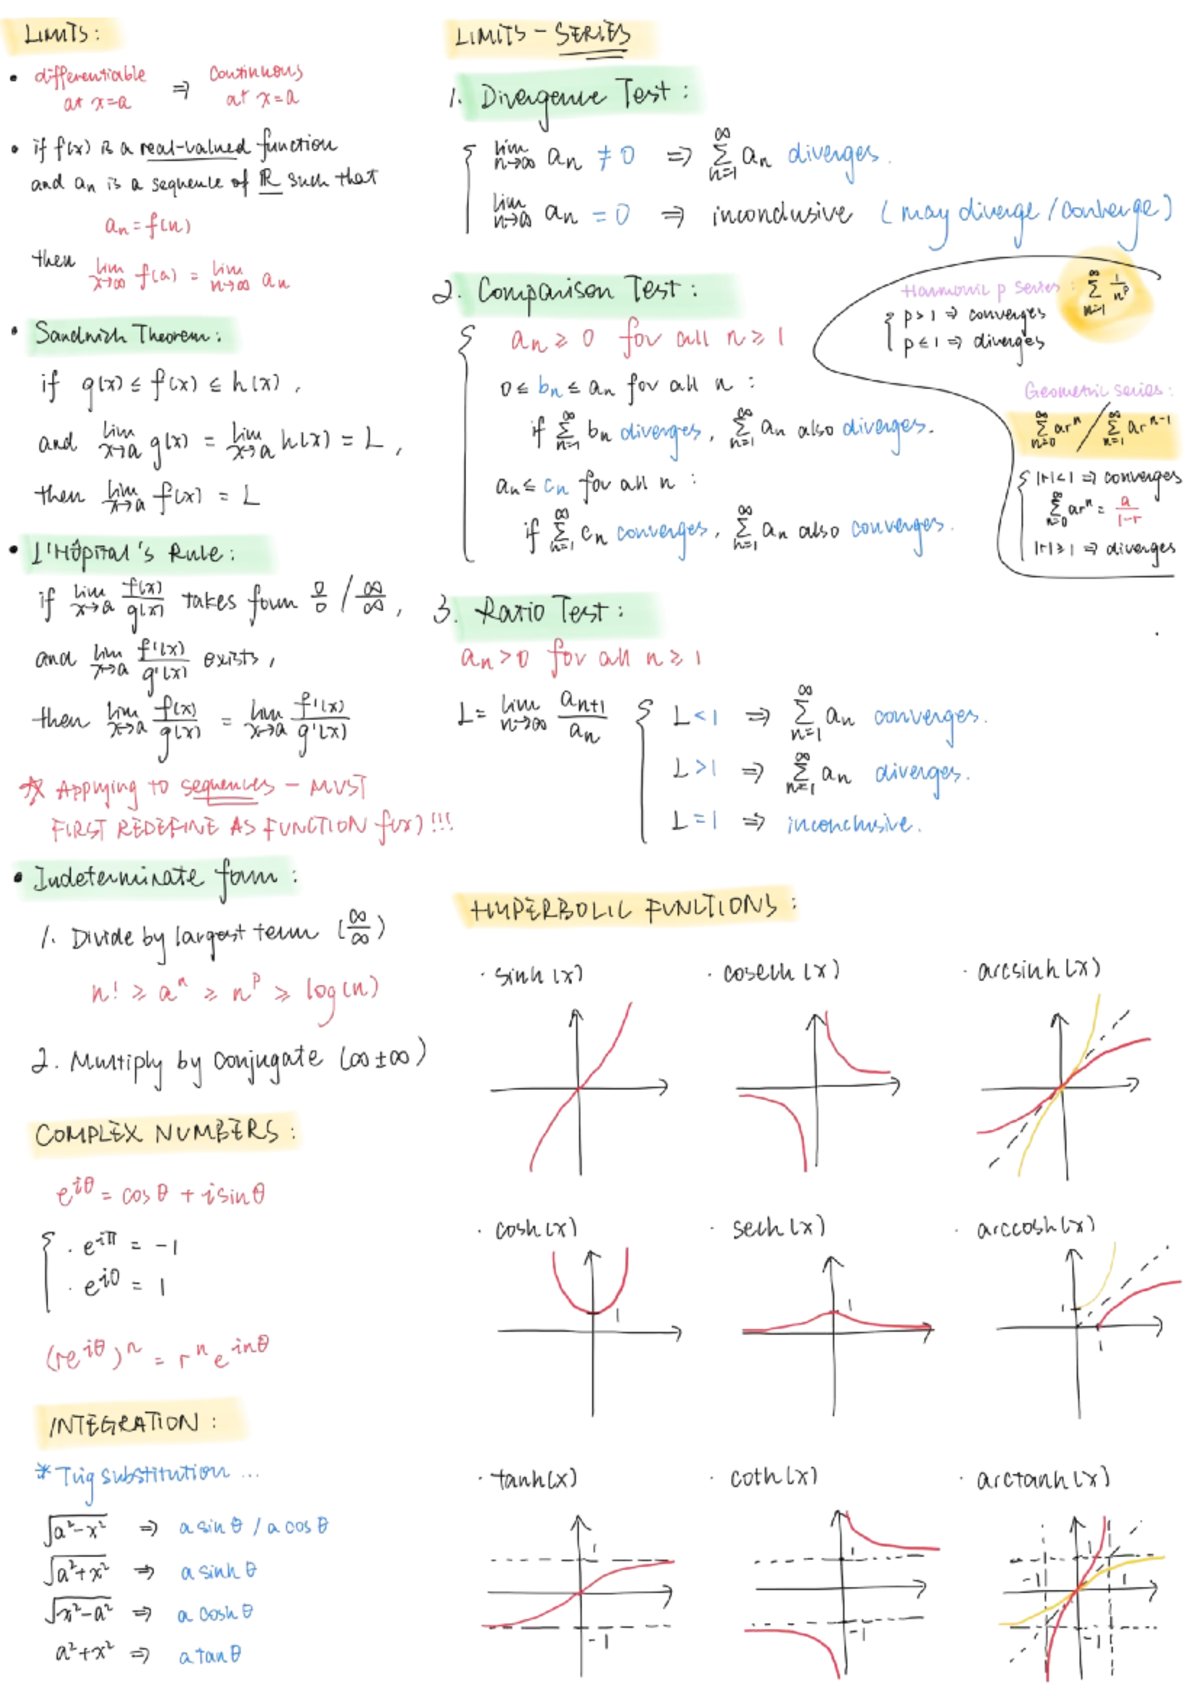 LIMITS:
• differentiable at x=a ⇒ continuous at x=a
• if f(x) is a real-valued function
and an is a sequence of ℝ such that
an = f(n)
then lim x→∞ f(a) = lim n→∞ an
• Sandwich Theorem:
if g(x) ≤ f(x) ≤ h(x),
and lim x→a g(x) = lim x→a h(x) = L,
then lim x→a f(x) = L
• L'Hôpital's Rule:
if lim x→a f(x)/g(x) takes form 0/0 / ∞/∞,
and lim x→a f'(x)/g'(x) exists,
then lim x→a f(x)/g(x) = lim x→a f'(x)/g'(x)
☆ Applying to sequences – MUST
FIRST REDEFINE AS FUNCTION f(x)!!!
• Indeterminate form:
1. Divide by largest term (∞/∞)
n! ≥ aⁿ ≥ nᵖ ≥ log(n)
2. Multiply by conjugate (∞±∞)
COMPLEX NUMBERS:
e^iθ = cosθ + isinθ
{ · e^iπ = -1
· e^i0 = 1
(re^iθ)ⁿ = rⁿe^inθ
INTEGRATION:
* Trig substitution ...
√a²-x² ⇒ a sinθ / a cosθ
√a²+x² ⇒ a sinhθ
√x²-a² ⇒ a coshθ
a²+x² ⇒ a tanθ
LIMITS – SERIES
1. Divergence Test:
{ lim n→∞ an ≠ 0 ⇒ ∞ Σ n=1 an diverges.
lim n→∞ an = 0 ⇒ inconclusive (may diverge/converge)
2. Comparison Test:
{ an ≥ 0 for all n ≥ 1
0 ≤ bn ≤ an for all n:
if ∞ Σ n=1 bn diverges, ∞ Σ n=1 an also diverges.
an ≤ cn for all n:
if ∞ Σ n=1 cn converges, ∞ Σ n=1 an also converges.
Harmonic p series: ∞ Σ n=1 1/nᵖ
{ p>1 ⇒ converges
p≤1 ⇒ diverges
Geometric series:
∞ Σ n=0 arⁿ / ∞ Σ n=1 arⁿ⁻¹
{ |r|<1 ⇒ converges
∞ Σ n=0 arⁿ = a/1-r
|r|≥1 ⇒ diverges
3. Ratio Test:
an>0 for all n ≥ 1
L = lim n→∞ an+1/an { L<1 ⇒ ∞ Σ n=1 an converges.
L>1 ⇒ ∞ Σ n=1 an diverges.
L=1 ⇒ inconclusive.
HYPERBOLIC FUNCTIONS:
· sinh(x) · cosech(x) · arcsinh(x)
· cosh(x) · sech(x) · arccosh(x)
1 1 1
1
· tanh(x) · coth(x) · arctanh(x)
1 1 1
-1 1
-1 -1 -1